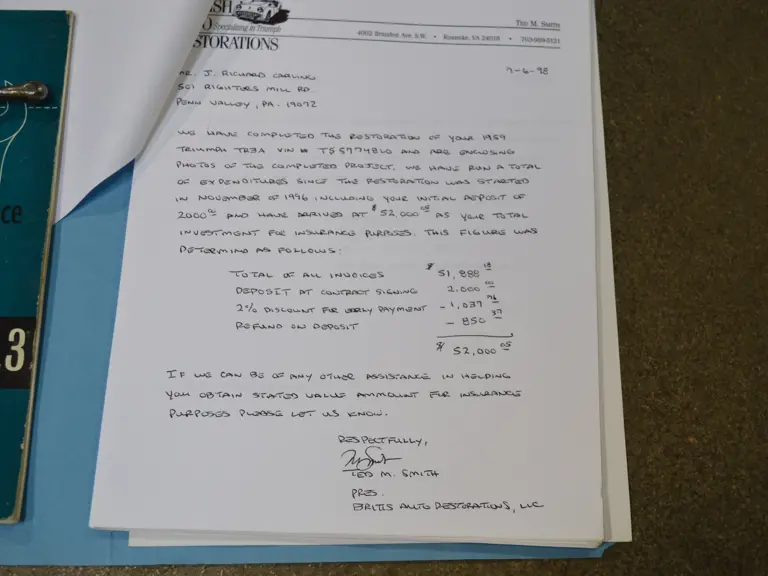 SH
O Specializing in Triumph
STORATIONS
TED M. SMITH
4002 Brandon Ave. S.W. • Roanoke, VA 24018 • 703-989-5121
7-6-98
MR. J. RICHARD CARLING
501 RIGHTERS MILL RD.
PENN VALLEY, PA. 19072
WE HAVE COMPLETED THE RESTORATION OF YOUR 1959
TRIUMPH TR3A VIN # TS 57748LO AND ARE ENCLOSING
PHOTOS OF THE COMPLETED PROJECT. WE HAVE RUN A TOTAL
OF EXPENDITURES SINCE THE RESTORATION WAS STARTED
IN NOVEMBER OF 1996 INCLUDING YOUR INITIAL DEPOSIT OF
2000 00 AND HAVE ARRIVED AT $ 52,000 05 AS YOUR TOTAL
INVESTMENT FOR INSURANCE PURPOSES. THIS FIGURE WAS
DETERMIND AS FOLLOWS:
TOTAL OF ALL INVOICES $ 51,888 18
DEPOSIT AT CONTRACT SIGNING 2,000 00
2% DISCOUNT FOR EARLY PAYMENT - 1,037 76
REFUND ON DEPOSIT - 850 37
$ 52,000 05
IF WE CAN BE OF ANY OTHER ASSISTANCE IN HELPING
YOU OBTAIN STATED VALUE AMMOUNT FOR INSURANCE
PURPOSES PLEASE LET US KNOW.
RESPECTFULLY,
TED M. SMITH
PRES.
BRITIS AUTO RESTORATIONS, LLC
ce
3